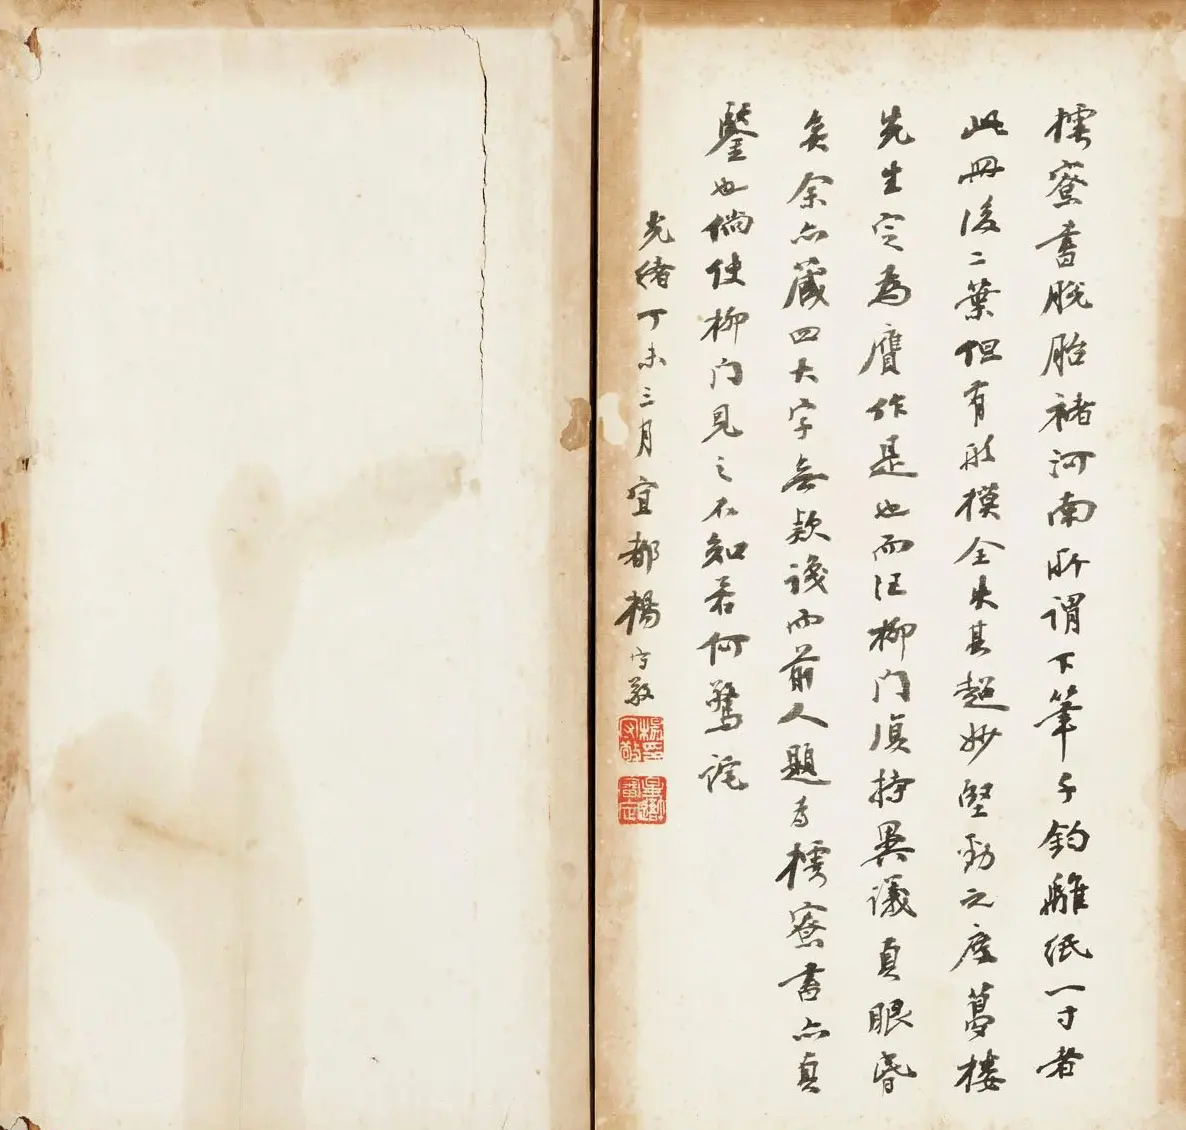 樗寮書脫胎褚河南所謂下筆千鈞離紙一寸者
此冊後二葉但有形模全失其超妙堅勁之度蔓樓
先生定為贗作是也而汪柳門原持異議真眼昏
矣余亦藏四大字無款識而前人題為樗寮書亦真
鑒也倘使柳門見之不知若何驚詫
光緒丁未三月宜都楊守敬